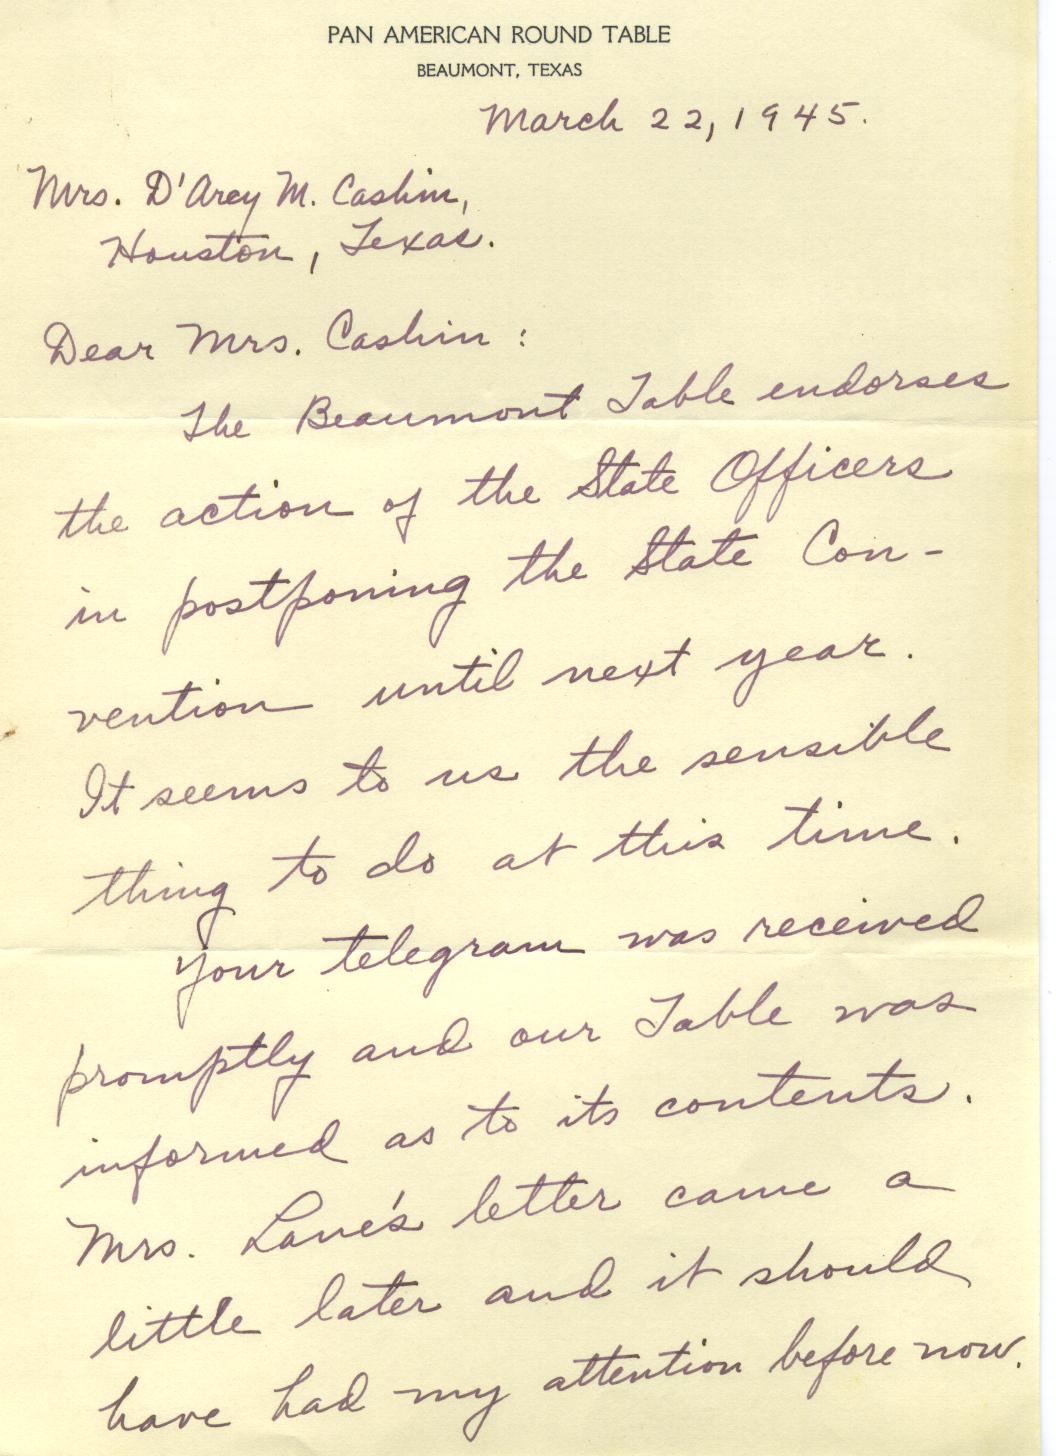 PAN AMERICAN ROUND TABLE
BEAUMONT, TEXAS
March 22, 1945.
Mrs. D'Arcy M. Cashin,
Houston, Texas.
Dear Mrs. Cashin:
The Beaumont Table endorses
the action of the State Officers
in postponing the State Con-
vention until next year.
It seems to us the sensible
thing to do at this time.
Your telegram was received
promptly and our Table was
informed as to its contents.
Mrs. Lane's letter came a
little later and it should
have had my attention before now.